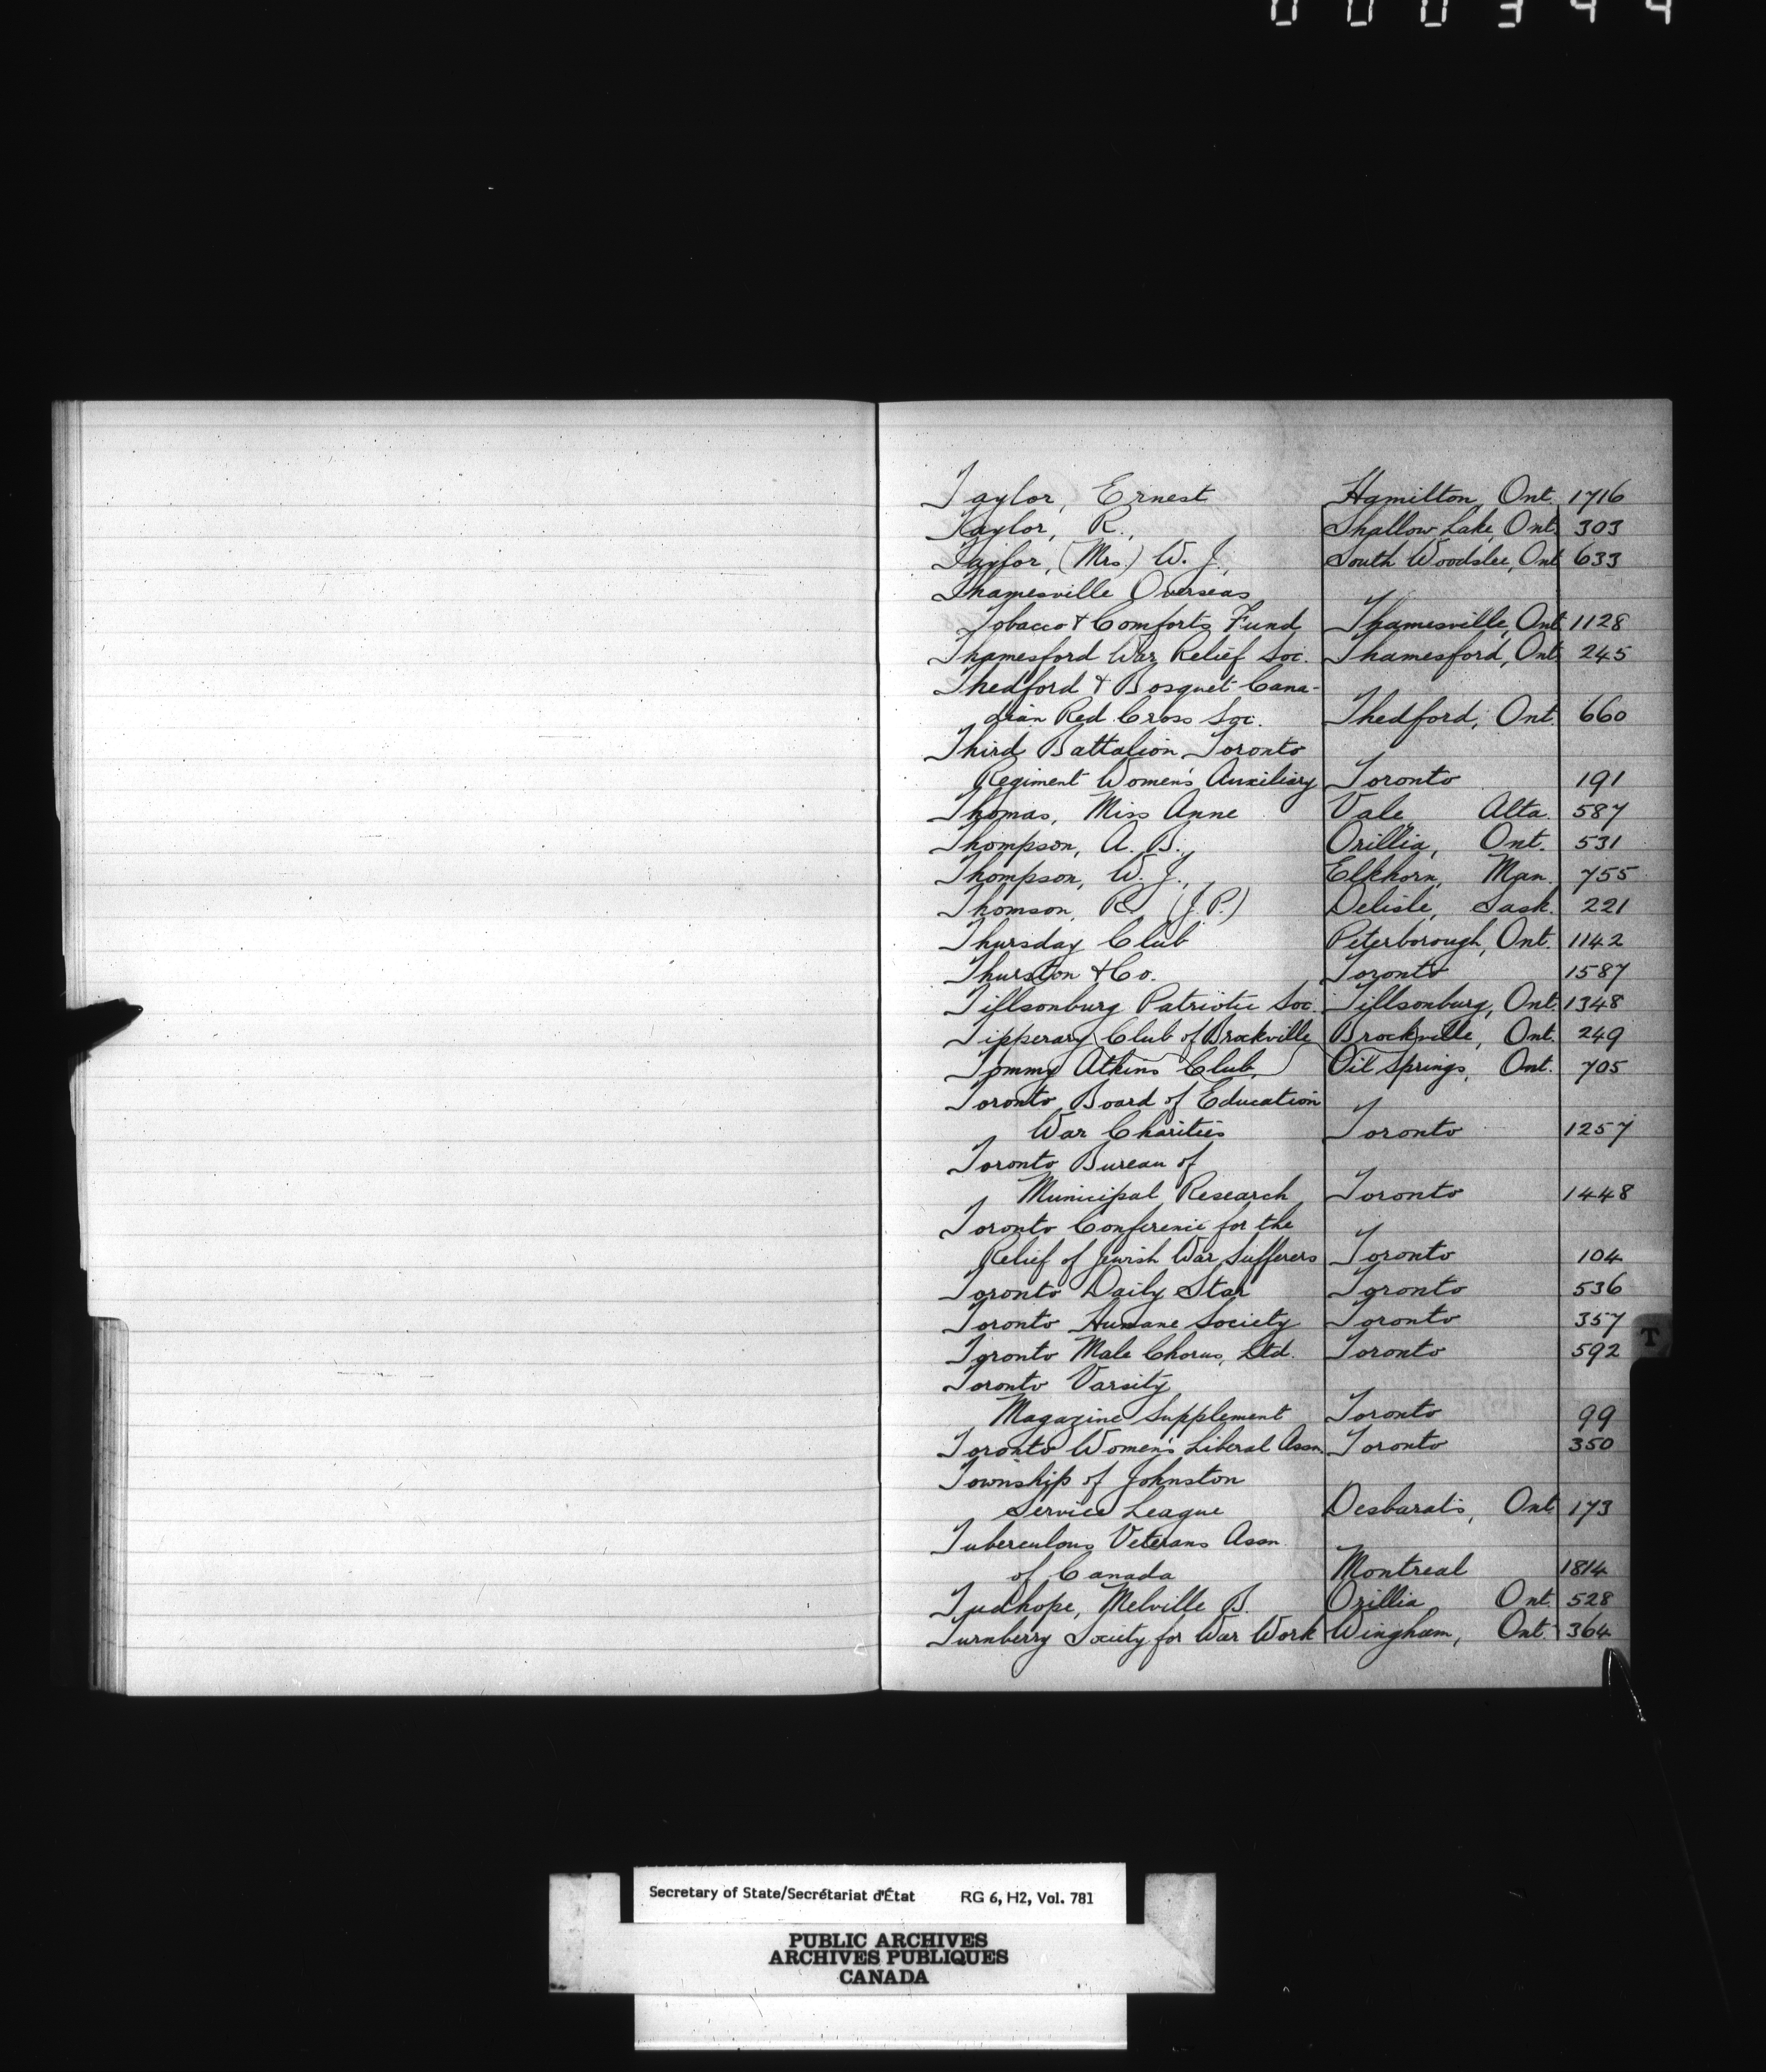 000344
Taylor, Ernest Hamilton, Ont. 1716
Taylor, R., Shallow Lake, Ont. 303
Taylor, (Mrs.) W. J., South Woodslee, Ont 633
Thamesville Overseas
Tobacco & Comforts Fund Thamesville, Ont 1128
Thamesford War Relief Soc. Thamesford, Ont. 245
Thedford & Bosquet Cana-
dian Red Cross Soc. Thedford, Ont. 660
Third Battalion Toronto
Regiment Women's Auxiliary Toronto 191
Thomas, Miss Anne Vale Alta. 587
Thompson, A. B., Orillia, Ont. 531
Thompson, W. J., Elkhorn, Man. 755
Thomson, R. (J.P.) Delisle, Sask. 221
Thursday Club Peterborough, Ont. 1142
Thurston & Co. Toronto 1587
Tillsonburg Patriotic Soc. Tillsonburg, Ont. 1348
Tipperary Club of Brockville Brockville, Ont. 249
Tommy Atkins Club, Oil Springs, Ont. 705
Toronto Board of Education
War Charities Toronto 1257
Toronto Bureau of
Municipal Research Toronto 1448
Toronto Conference for the
Relief of Jewish War Sufferers Toronto 104
Toronto Daily Star Toronto 536
Toronto Humane Society Toronto 357
T
Toronto Male Chorus, Ltd. Toronto 592
Toronto Varsity
Magazine Supplement Toronto 99
Toronto Women's Liberal Assn. Toronto 350
Township of Johnston
Service League Desbarats, Ont 173
Tuberculous Veterans Assn.
of Canada Montreal 1814
Tudhope, Melville B. Orillia Ont. 528
Turnberry Society for War Work Wingham, Ont. 364
Secretary of State/Secrétariat d'État RG 6, H2, Vol. 781
PUBLIC ARCHIVES
ARCHIVES PUBLIQUES
CANADA